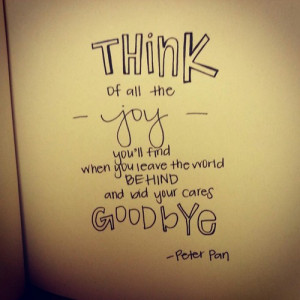 THINK
of all the
- joy -
you'll find
when you leave the world
BEHIND
and bid your cares
GOODbYE
-Peter Pan